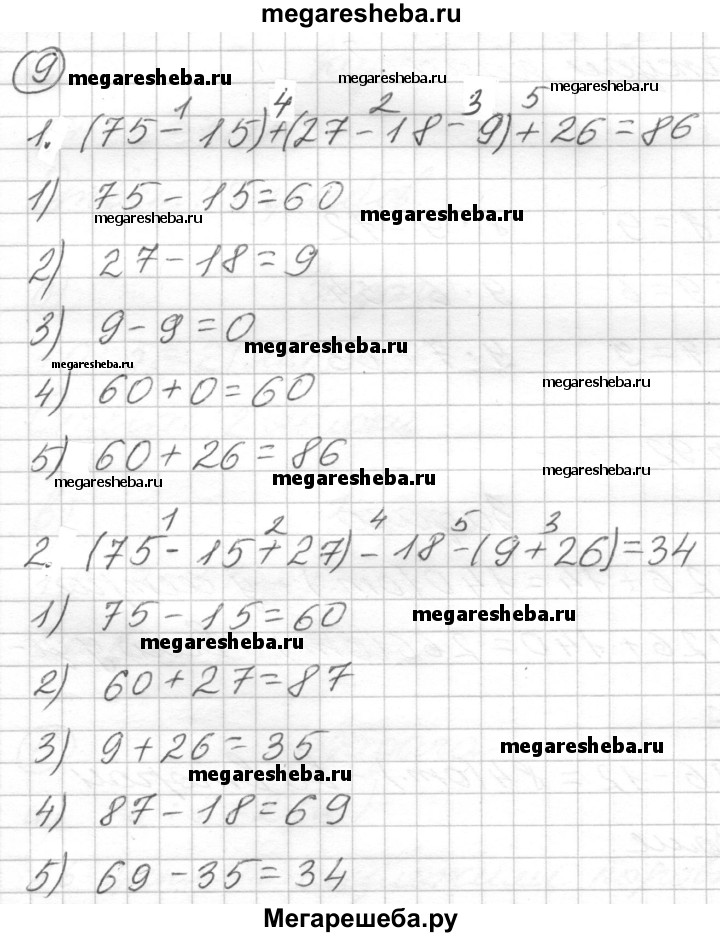 megaresheba.ru
9 megaresheba.ru megaresheba.ru megaresheba.ru
1 4 2 3 5
1. (75 - 15) + (27 - 18 - 9) + 26 = 86
1) 75 - 15 = 60
megaresheba.ru megaresheba.ru
2) 27 - 18 = 9
3) 9 - 9 = 0
megaresheba.ru
megaresheba.ru
4) 60 + 0 = 60
megaresheba.ru
5) 60 + 26 = 86
megaresheba.ru megaresheba.ru megaresheba.ru
1 2 4 5 3
2. (75 - 15 + 27) - 18 - (9 + 26) = 34
1) 75 - 15 = 60
megaresheba.ru
megaresheba.ru
2) 60 + 27 = 87
3) 9 + 26 = 35
megaresheba.ru
megaresheba.ru
4) 87 - 18 = 69
5) 69 - 35 = 34
Мегарешеба.ру